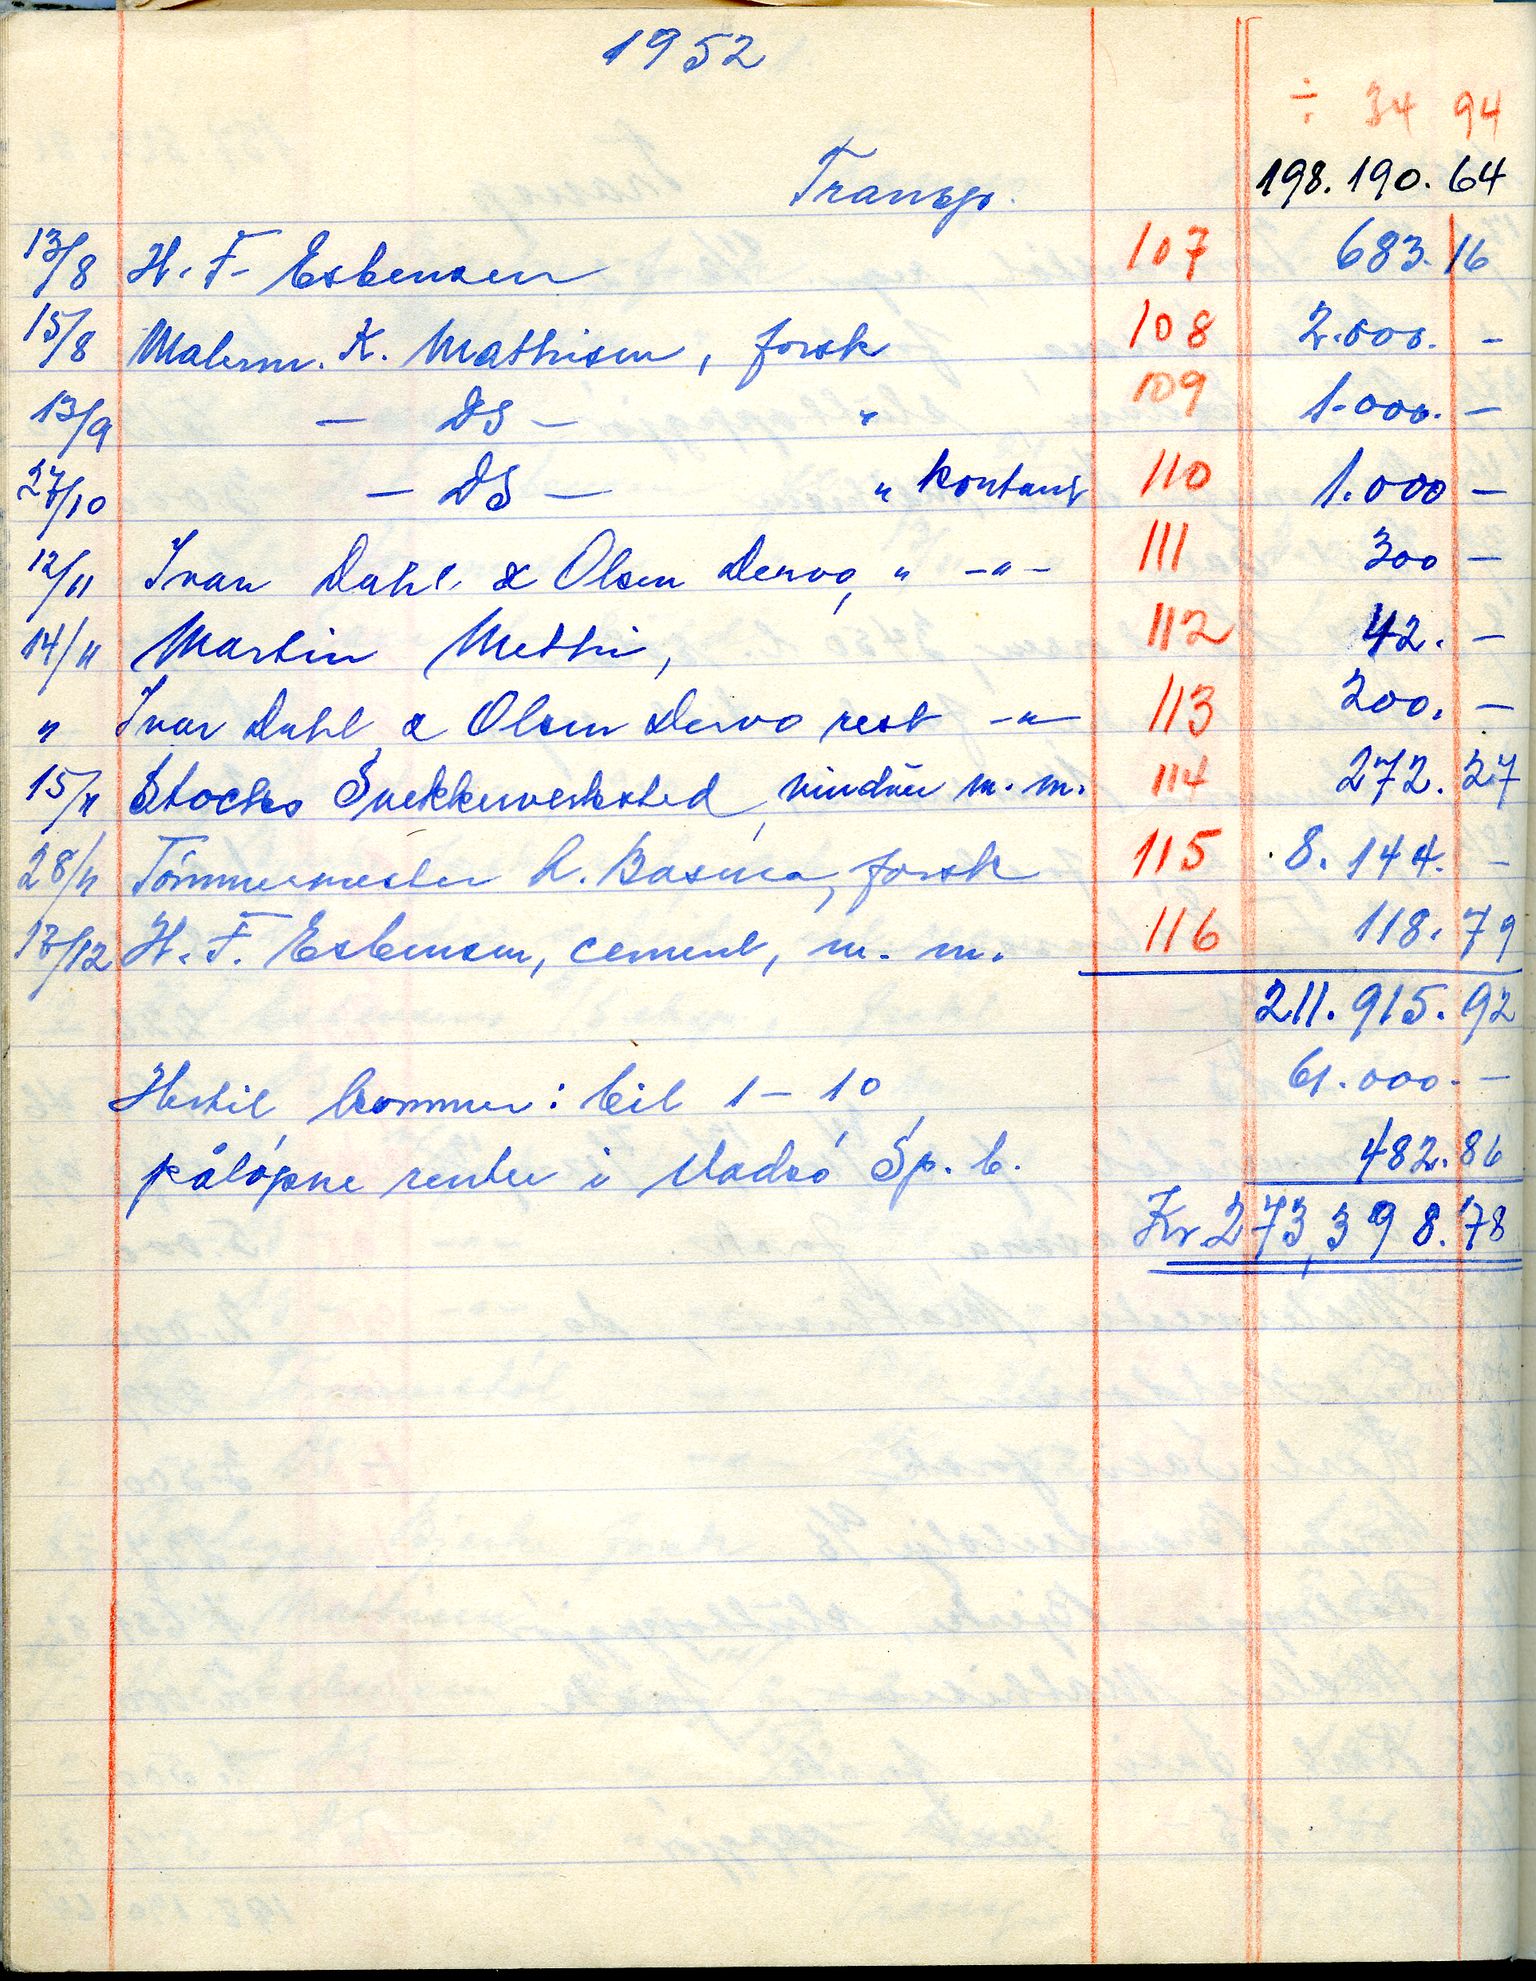 1952
÷ 34 94
Transp. 198.190.64
13/8 H. F. Esbensen 107 683.16
15/8 Malerm. K. Mathisen, forsk 108 2.000. -
13/9 - DS - " 109 1.000. -
27/10 - DS - " kontant 110 1.000 -
12/11 Ivar Dahl & Olsen Dervo, " -"- 111 300 -
14/11 Martin Methi, 112 42. -
" Ivar Dahl & Olsen Dervo rest -"- 113 200. -
15/11 Stocks Snekkerverksted, vinduer m. m. 114 272.27
28/11 Tömmermester A. Basma, forsk 115 8.144. -
12/12 H. F. Esbensen, cement, m. m. 116 118.79
211.915.92
Hertil kommer: bil 1-10 61.000. -
påløpne renter i Vadsö Sp. b. 482.86
Kr. 273,398.78